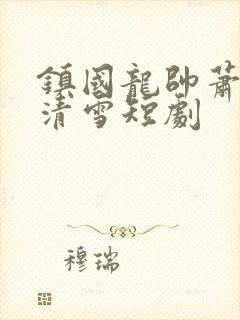 鎮國龍帥蕭
清雪短劇
穆瑞